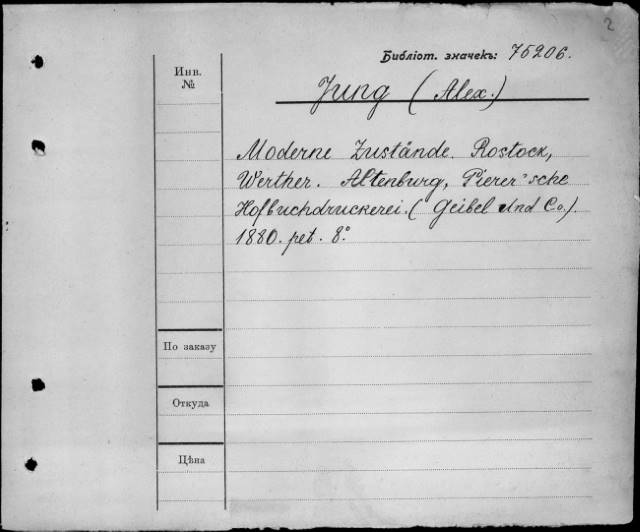 2
Библіот. значекъ: 75206.
Инв.
№
Jung (Alex.)
Moderne Zustände. Rostock,
Werther. Altenburg, Pierer'sche
Hofbuchdruckerei. (Geibel und Co.).
1880. pet. 8°.
По заказу
Откуда
Цѣна